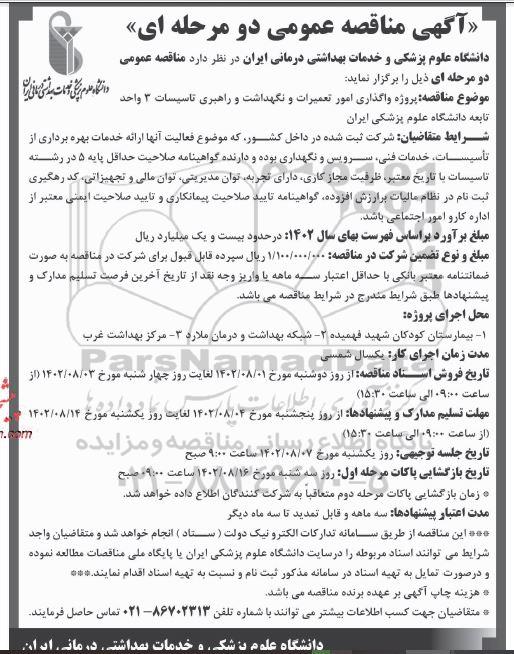 «آگهی مناقصه عمومی دو مرحله ای»
دانشگاه علوم پزشکی و خدمات بهداشتی درمانی ایران
دانشگاه علوم پزشکی و خدمات بهداشتی درمانی ایران در نظر دارد مناقصه عمومی
دو مرحله ای ذیل را برگزار نماید:
موضوع مناقصه:پروژه واگذاری امور تعمیرات و نگهداشت و راهبری تاسیسات ۳ واحد
تابعه دانشگاه علوم پزشکی ایران
شرایط متقاضیان: شرکت ثبت شده در داخل کشور، که موضوع فعالیت آنها ارائه خدمات بهره برداری از
تأسیسات، خدمات فنی، سرویس و نگهداری بوده و دارنده گواهینامه صلاحیت حداقل پایه ۵ در رشته
تاسیسات با تاریخ معتبر، ظرفیت مجاز کاری، دارای تجربه، توان مدیریتی، توان مالی و تجهیزاتی، کد رهگیری
ثبت نام در نظام مالیات برارزش افزوده، گواهینامه تایید صلاحیت پیمانکاری و تایید صلاحیت ایمنی معتبر از
اداره کارو امور اجتماعی باشد.
مبلغ برآورد براساس فهرست بهای سال ۱۴۰۲: درحدود بیست و یک میلیارد ریال
مبلغ و نوع تضمین شرکت در مناقصه: ۱/۱۰۰/۰۰۰/۰۰۰ ریال سپرده قابل قبول برای شرکت در مناقصه به صورت
ضمانتنامه معتبر بانکی با حداقل اعتبار سه ماهه یا واریز وجه نقد از تاریخ آخرین فرصت تسلیم مدارک و
پیشنهادها طبق شرایط مندرج در شرایط مناقصه می باشد.
محل اجرای پروژه:
۱- بیمارستان کودکان شهید فهمیده ۲- شبکه بهداشت و درمان ملارد ۳- مرکز بهداشت غرب
مدت زمان اجرای کار: یکسال شمسی
تاریخ فروش اسناد مناقصه: از روز دوشنبه مورخ ۱۴۰۲/۰۸/۰۱ لغایت روز چهار شنبه مورخ ۱۴۰۲/۰۸/۰۳ (از
ساعت ۰۹:۰۰ الی ساعت ۱۵:۳۰)
مهلت تسلیم مدارک و پیشنهادها: از روز پنجشنبه مورخ ۱۴۰۲/۰۸/۰۴ لغایت روز یکشنبه مورخ ۱۴۰۲/۰۸/۱۴
(از ساعت ۰۹:۰۰ الی ساعت ۱۵:۳۰)
تاریخ جلسه توجیهی: روز یکشنبه مورخ ۱۴۰۲/۰۸/۰۷ ساعت ۹:۰۰ صبح
تاریخ بازگشایی پاکات مرحله اول: روز سه شنبه مورخ ۱۴۰۲/۰۸/۱۶ ساعت ۰۹:۰۰ صبح
* زمان بازگشایی پاکات مرحله دوم متعاقبا به شرکت کنندگان اطلاع داده خواهد شد.
مدت اعتبار پیشنهادها: سه ماهه و قابل تمدید تا سه ماه دیگر
*** این مناقصه از طریق سامانه تدارکات الکترونیک دولت (ستاد) انجام خواهد شد و متقاضیان واجد
شرایط می توانند اسناد مربوطه را درسایت دانشگاه علوم پزشکی ایران یا پایگاه ملی مناقصات مطالعه نموده
و درصورت تمایل به تهیه اسناد در سامانه مذکور ثبت نام و نسبت به تهیه اسناد اقدام نمایند.***
* هزینه چاپ آگهی بر عهده برنده مناقصه می باشد.
* متقاضیان جهت کسب اطلاعات بیشتر می توانند با شماره تلفن ۸۶۷۰۲۳۱۳-۰۲۱ تماس حاصل فرمایند.
دانشگاه علوم پزشکی و خدمات بهداشتی درمانی ایران